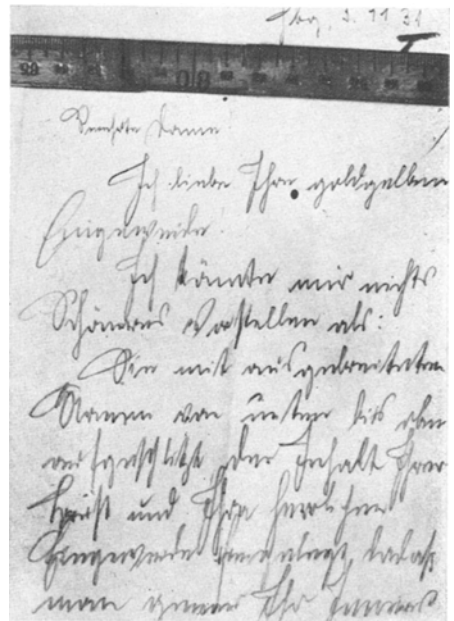 Hbg, 3. 11 31
Verehrte Dame!
Ich liebe Ihre goldgelben
Eingeweide!
Ich könnte mir nichts
Schöneres Vorstellen als:
Sie mit ausgebreiteten
Armen von unten bis oben
aufgeschlitzt, der Inhalt Ihrer
Brust und Ihre herrlichen
Eingeweide sodass
man genau Ihr Inneres